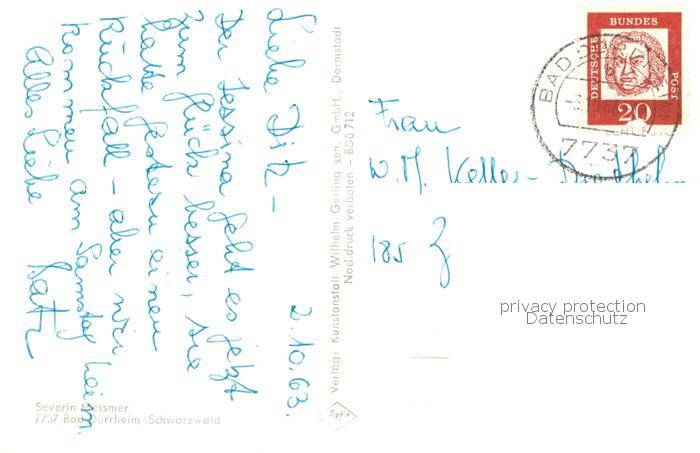 2.10.63.
Liebe Ditz –
Der Jessina geht es jetzt
zum Glück besser, sie
hatte gestern einen
Rückfall – aber wir
kommen am Samstag heim.
Alles Liebe
Verlag: Kunstanstalt Wilhelm Gerling sen. GmbH., Darmstadt
Nachdruck verboten - BDü 712
Severin Messmer
7737 Bad Dürrheim/Schwarzwald
DEUTSCHE BUNDESPOST
20
BAD DÜRRHEIM
7737
Frau
W. M. Keller-
185
privacy protection
Datenschutz